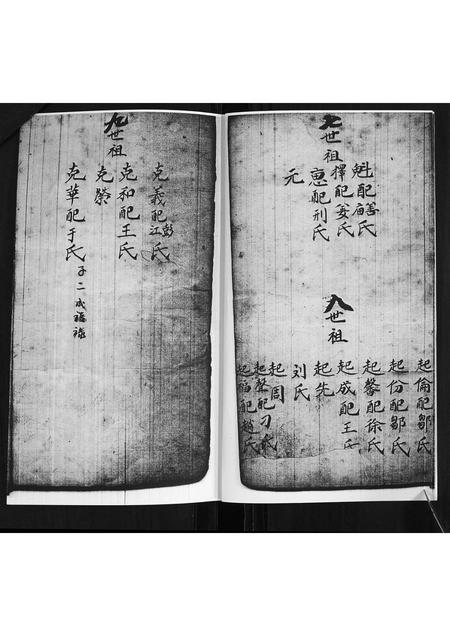 七世祖
魁配善氏庙
擇配姜氏
惠配刑氏
元
八世祖
起倫配鄒氏
起份配鄒氏
起馨配徐氏
起成配王氏
起先
刘氏
起周
起聲配刁氏
起福配趙氏
九世祖
克義配彭氏江
克和配王氏
克榮
克華配于氏子二成福禄